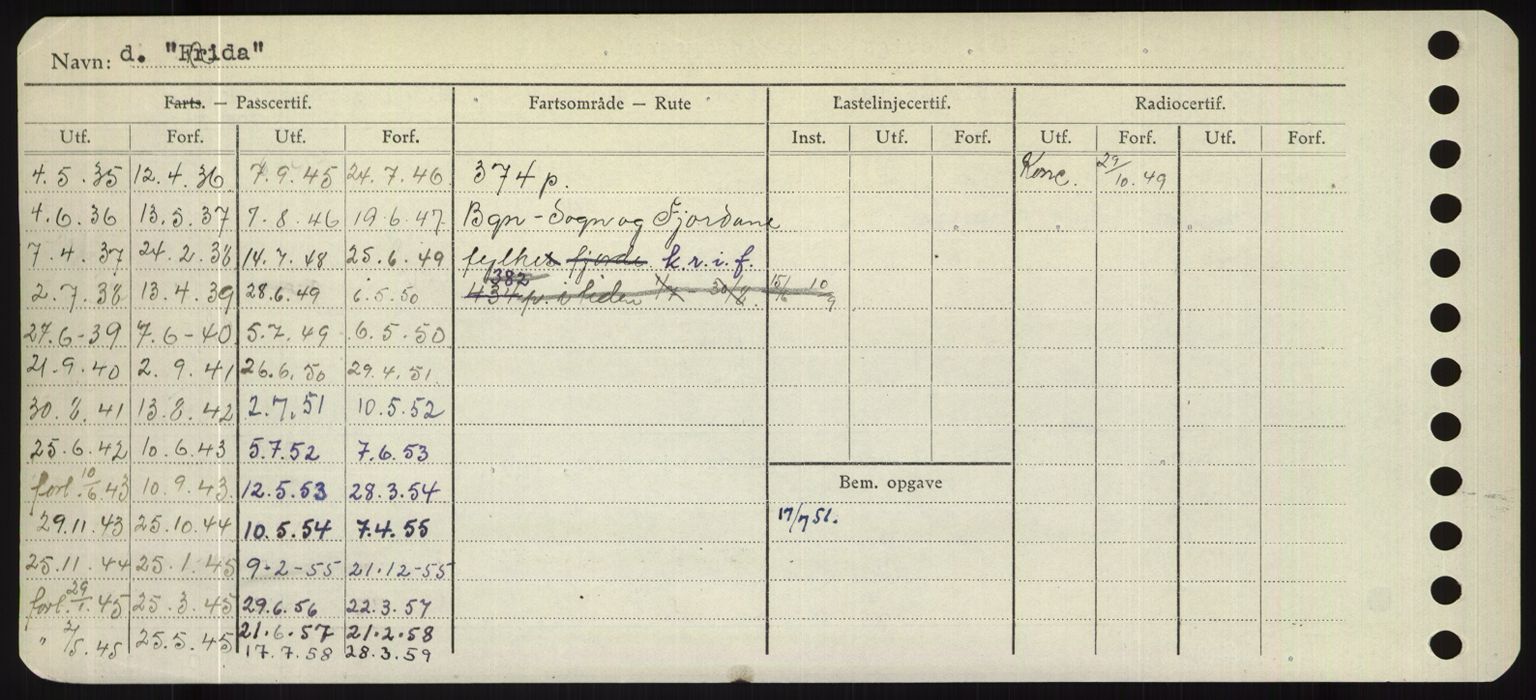 Navn: d. "Frida"
Farts. — Passcertif. Fartsområde — Rute Lastelinjecertif. Radiocertif.
Utf. Forf. Utf. Forf. Inst. Utf. Forf. Utf. Forf. Utf. Forf.
4.5.35 12.4.36 7.9.45 24.7.46 374 p. Konc. 29/10.49
4.6.36 13.5.37 7.8.46 19.6.47 Bgn - Sogn og Fjordane
7.4.37 24.2.38 14.7.48 25.6.49 fylke fjorde k.r.i.f.
382
2.7.38 13.4.39 28.6.49 6.5.50 434 p. i tiden 1/7 - 30/8. 15/6 10/9
27.6-39 7.6-40 5.7.49 6.5.50
21.9.40 2.9.41 26.6.50 29.4.51.
30.8.41 13.8.42 2.7.51 10.5.52
25.6.42 10.6.43 5.7.52 7.6.53
forl. 10/6.43 10.9.43. 12.5.53 28.3.54 Bem. opgave
29.11.43 25.10.44 10.5.54 7.4.55 17/7 51.
25.11.44 25.1.45 9-2-55 21.12-55
forl. 29/1.45 25.3.45 29.6.56 22.3.57
" 2/5.45 25.5.45 21.6.57 21.2.58
17.7.58 28.3.59